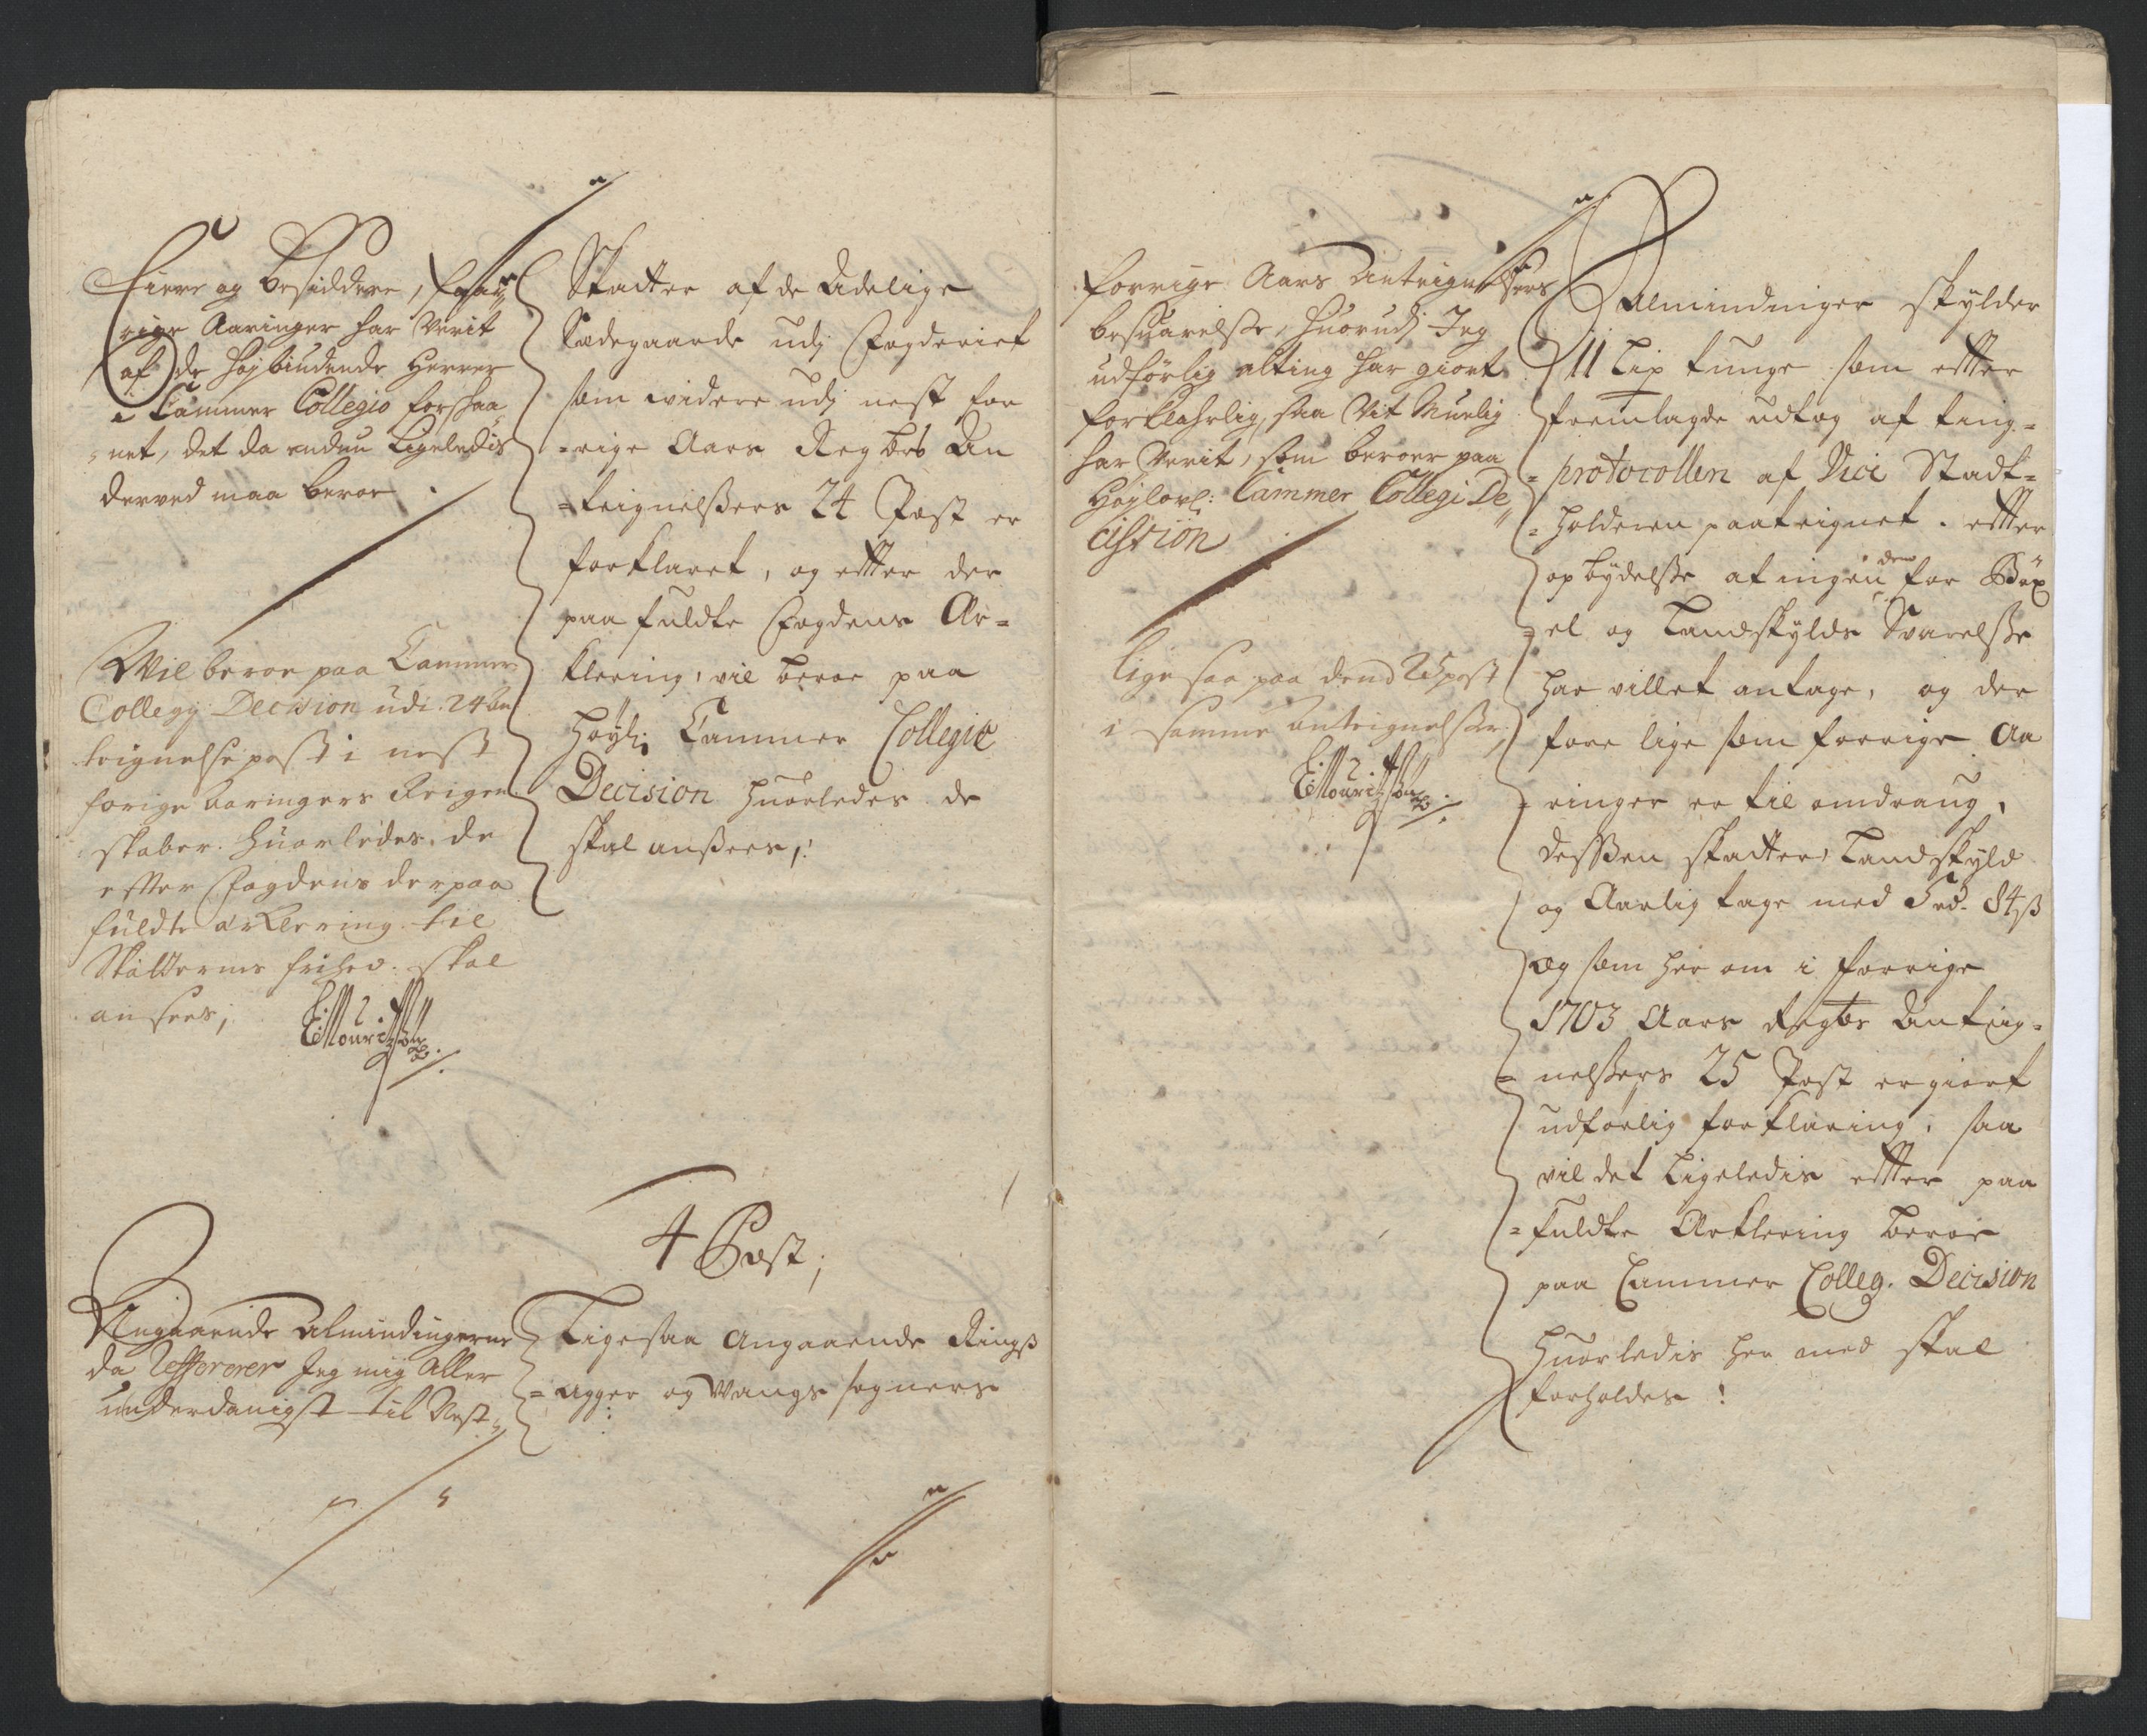 Eiere og besiddere, for
rige Aaringer har verit
af de høybiudende Herrer
i Cammer Collegio forskaa
net, det da endnu Ligeledis
derved maa beroe
Wil beroe paa Cammer
Collegy Decision udi 24 An
teignelse post i nest
forige aaringers Reigen
skaber. huorledes de
efter Fogdens der paa
fuldte erklering til
Skatternes frihed skal
ansees,
EMouritzøn
Skatter af de Adelige
Sædegaarde udj Fogderiet
som widere udj nest for
=rige Aars Regbrs An
=teignelßers 24 Post er
forklaret, og effter der
paa fuldte Fogdens Er=
klering, vil beroe paa
Høyl: Cammer Collegie
Decision huorledes de
skal anßees,
4 Post,
Angaaende Almindingerne
da Refererer Jeg mig Aller
underdanigst til Nest
Ligesaa angaaende Rings
=agger og Wangs sogners
forrige Aars Anteignelsers
besuarelse, huorudj Jeg
udførlig alting har giort
forklahrlig, saa Vit Muelig
har Verit, som beroer paa
Høylovl: Cammer Collegi De
cission
lige saa paa dend 25 post
i samme anteignelsser
EMouritzøn
Almindinger skylder
11 Lip tunge som effter
fremlagde udtog af ting=
=protocollen af Vice Stadt=
=holderen paateignet. effter
opbydelße at ingen den for Böx
=el og Landskylds Svarelße
har villet antage, og der
fore lige som forrige Aa
=ringer er til omdraug,
desßen skatter, Landskyld
og Aarlig tage med 5 rd. 84 ß
og som her om i forrige
1703 Aars Regbrs Anteig=
=nelßers 25 Post er giort
udførlig forklaring, saa
vil det Ligeledis effter paa
=fuldte Erklering beroe
paa Cammer Colleg. Decision
huorledis her med skal
forholdes!